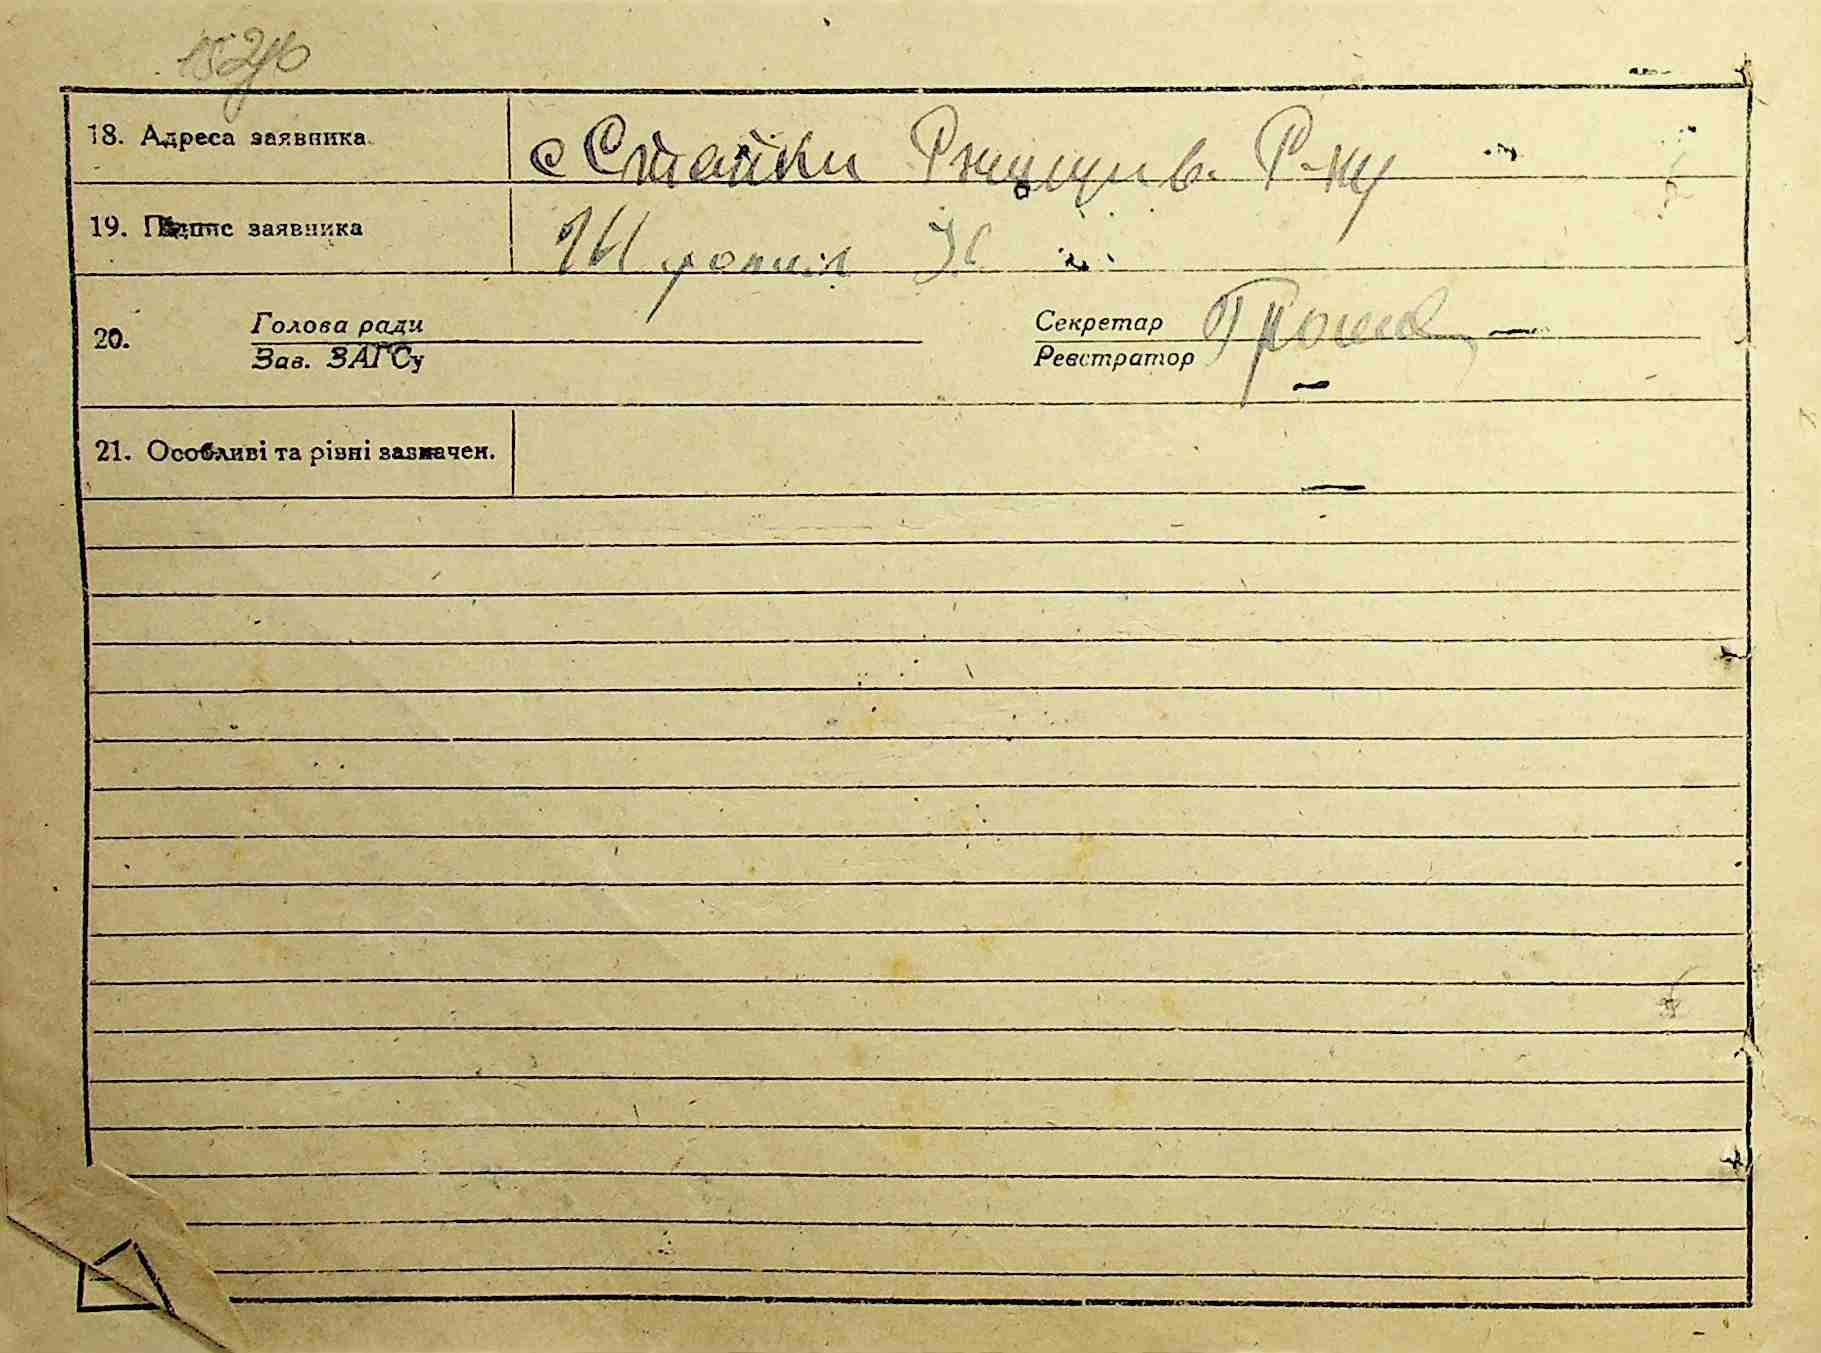 18. Адреса заявника
с Стайки Ржищив. Р-ну
19. Підпис заявника
20. Голова ради
Зав. ЗАГСу
Секретар
Реєстратор
21. Особливі та різні зазначен.